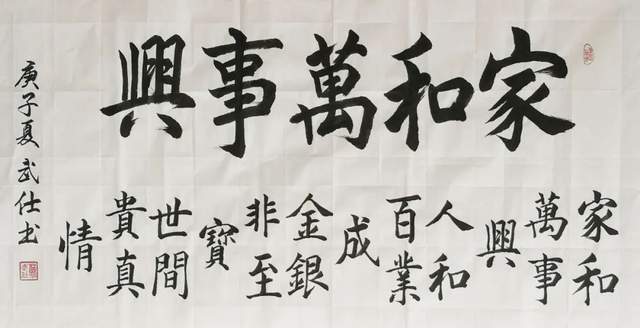 家和萬事興
家和
萬事
興
人和
百業
成
金銀
非至
寶
世間
貴真
情
庚子夏武仕书